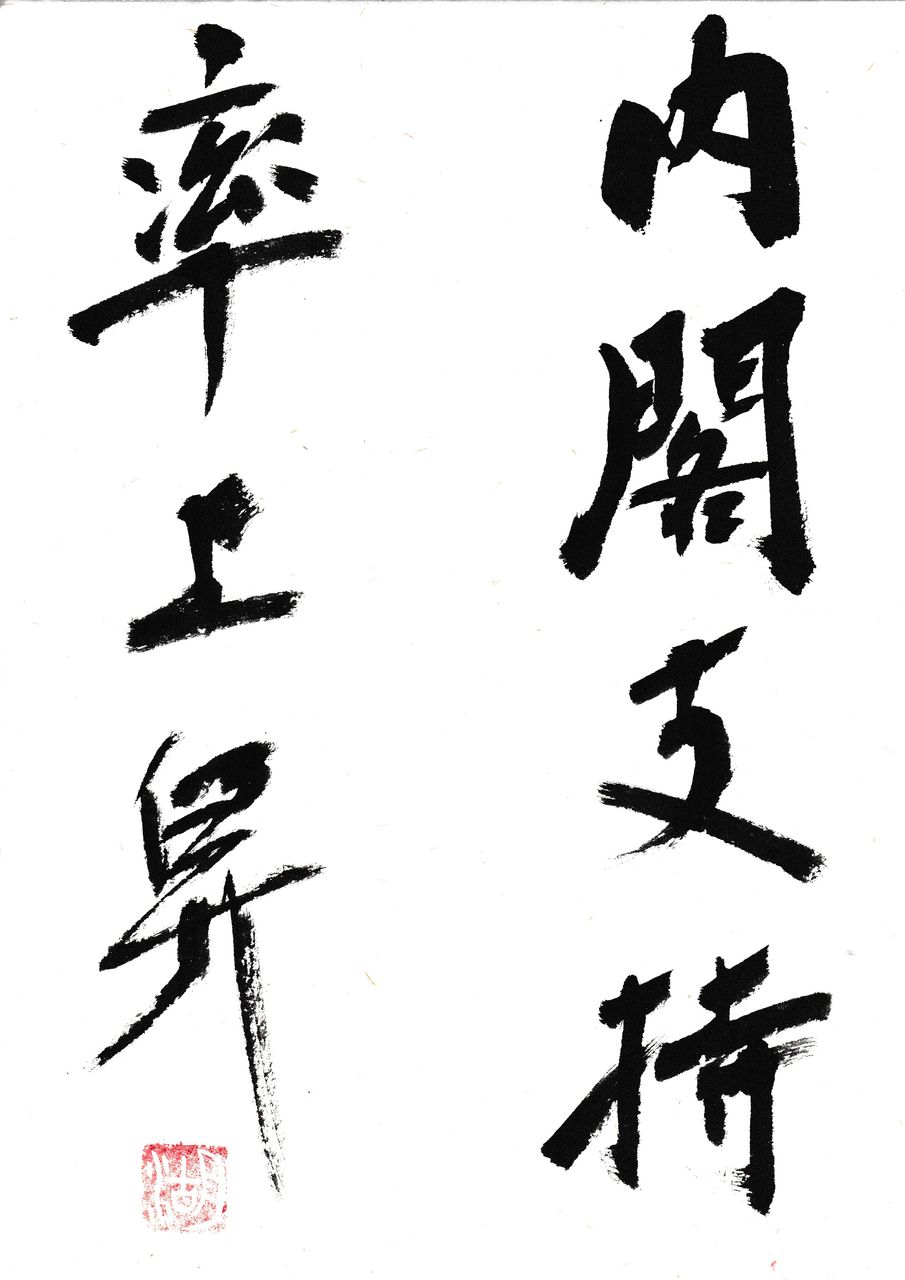 内閣支持
率上昇